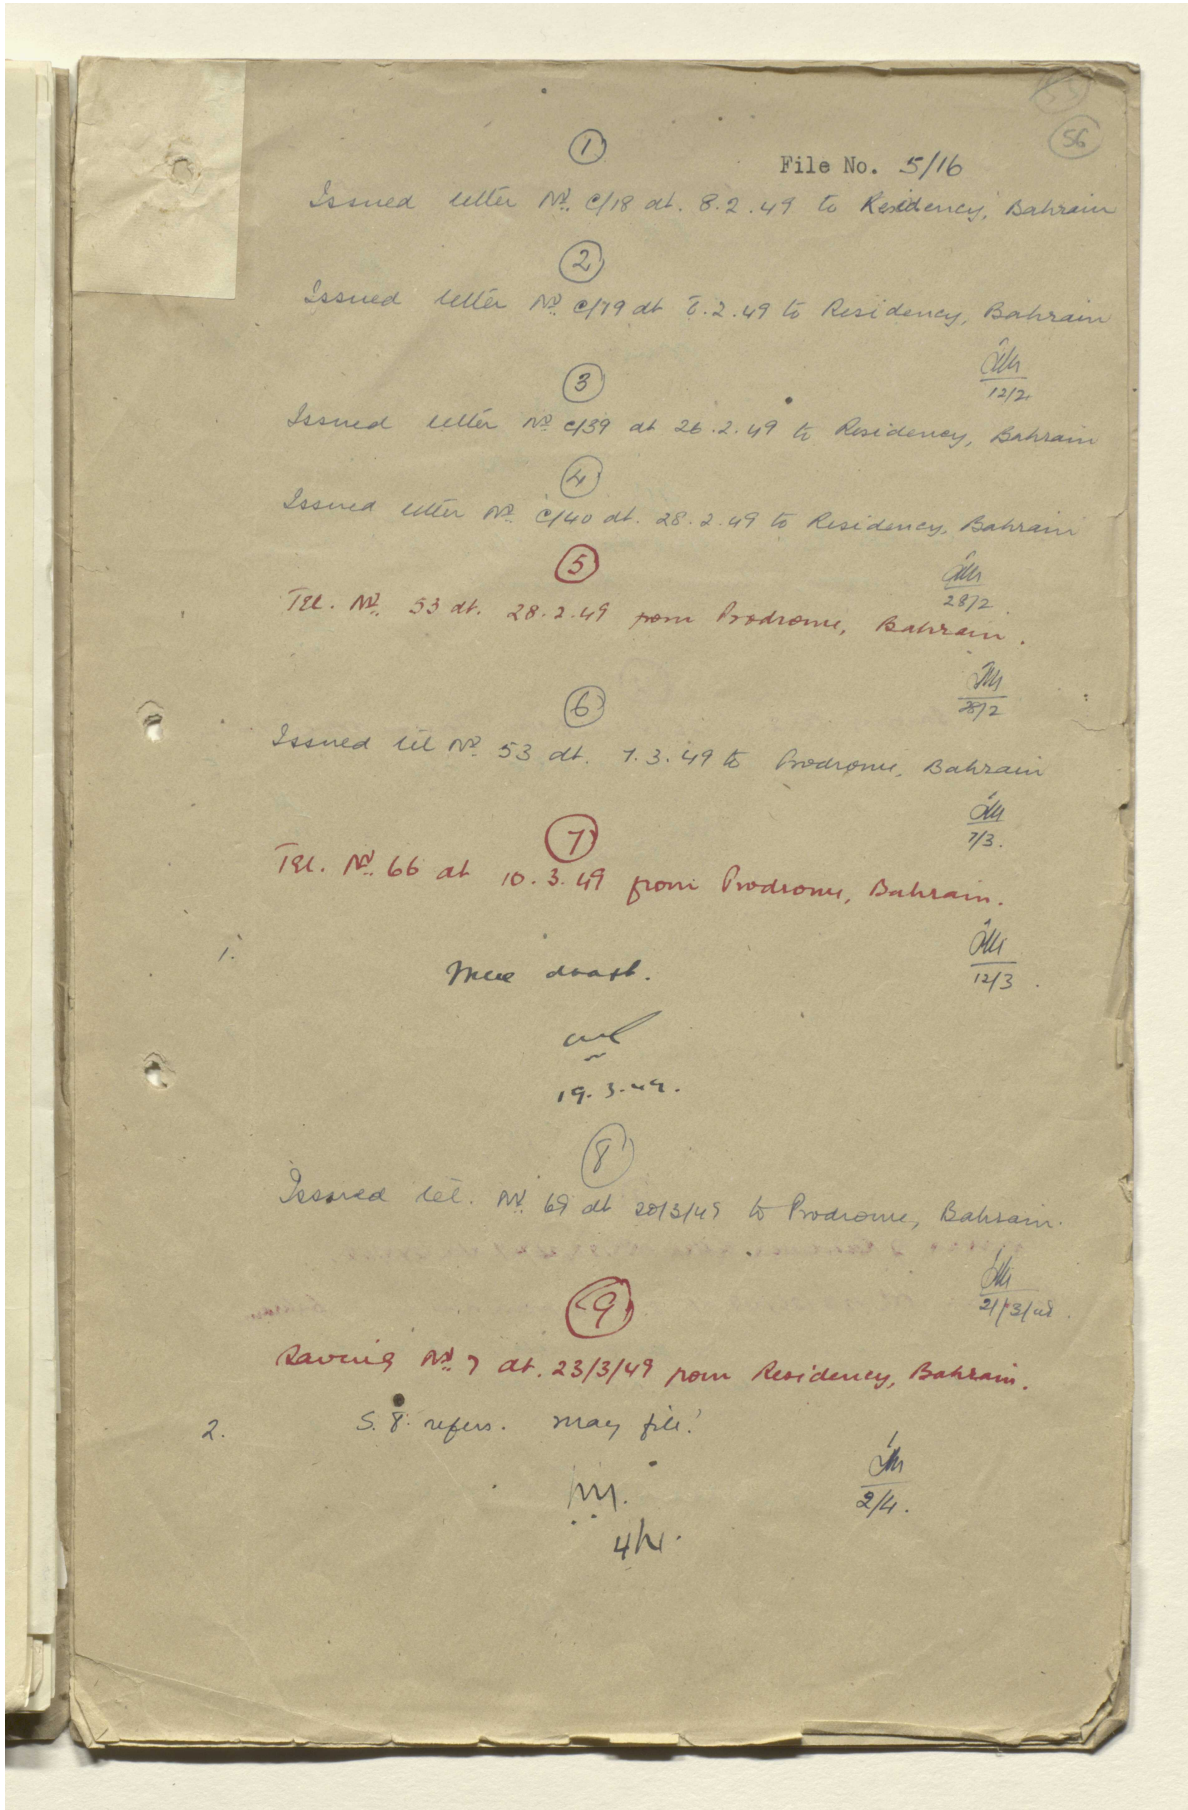 56
1
File No. 5/16
Issued letter No. C/18 dt. 8.2.49 to Residency, Bahrain
2
Issued letter No. C/19 dt 8.2.49 to Residency, Bahrain
12/2
3
Issued letter No. C/39 dt 26.2.49 to Residency, Bahrain
4
Issued letter No. C/40 dt. 28.2.49 to Residency, Bahrain
28/2
5
Tel. No. 53 dt. 28.2.49 from Prodrome, Bahrain.
28/2
6
Issued tel No. 53 dt. 7.3.49 to Prodrome, Bahrain
7/3.
7
Tel. No. 66 dt 10.3.49 from Prodrome, Bahrain.
12/3.
1. draft.
19.3.49.
8
Issued tel. No. 69 dt 20/3/49 to Prodrome, Bahrain.
21/3/49.
9
Saving No. 7 dt. 23/3/49 from Residency, Bahrain.
2. S. 8. refers. May file?
2/4.